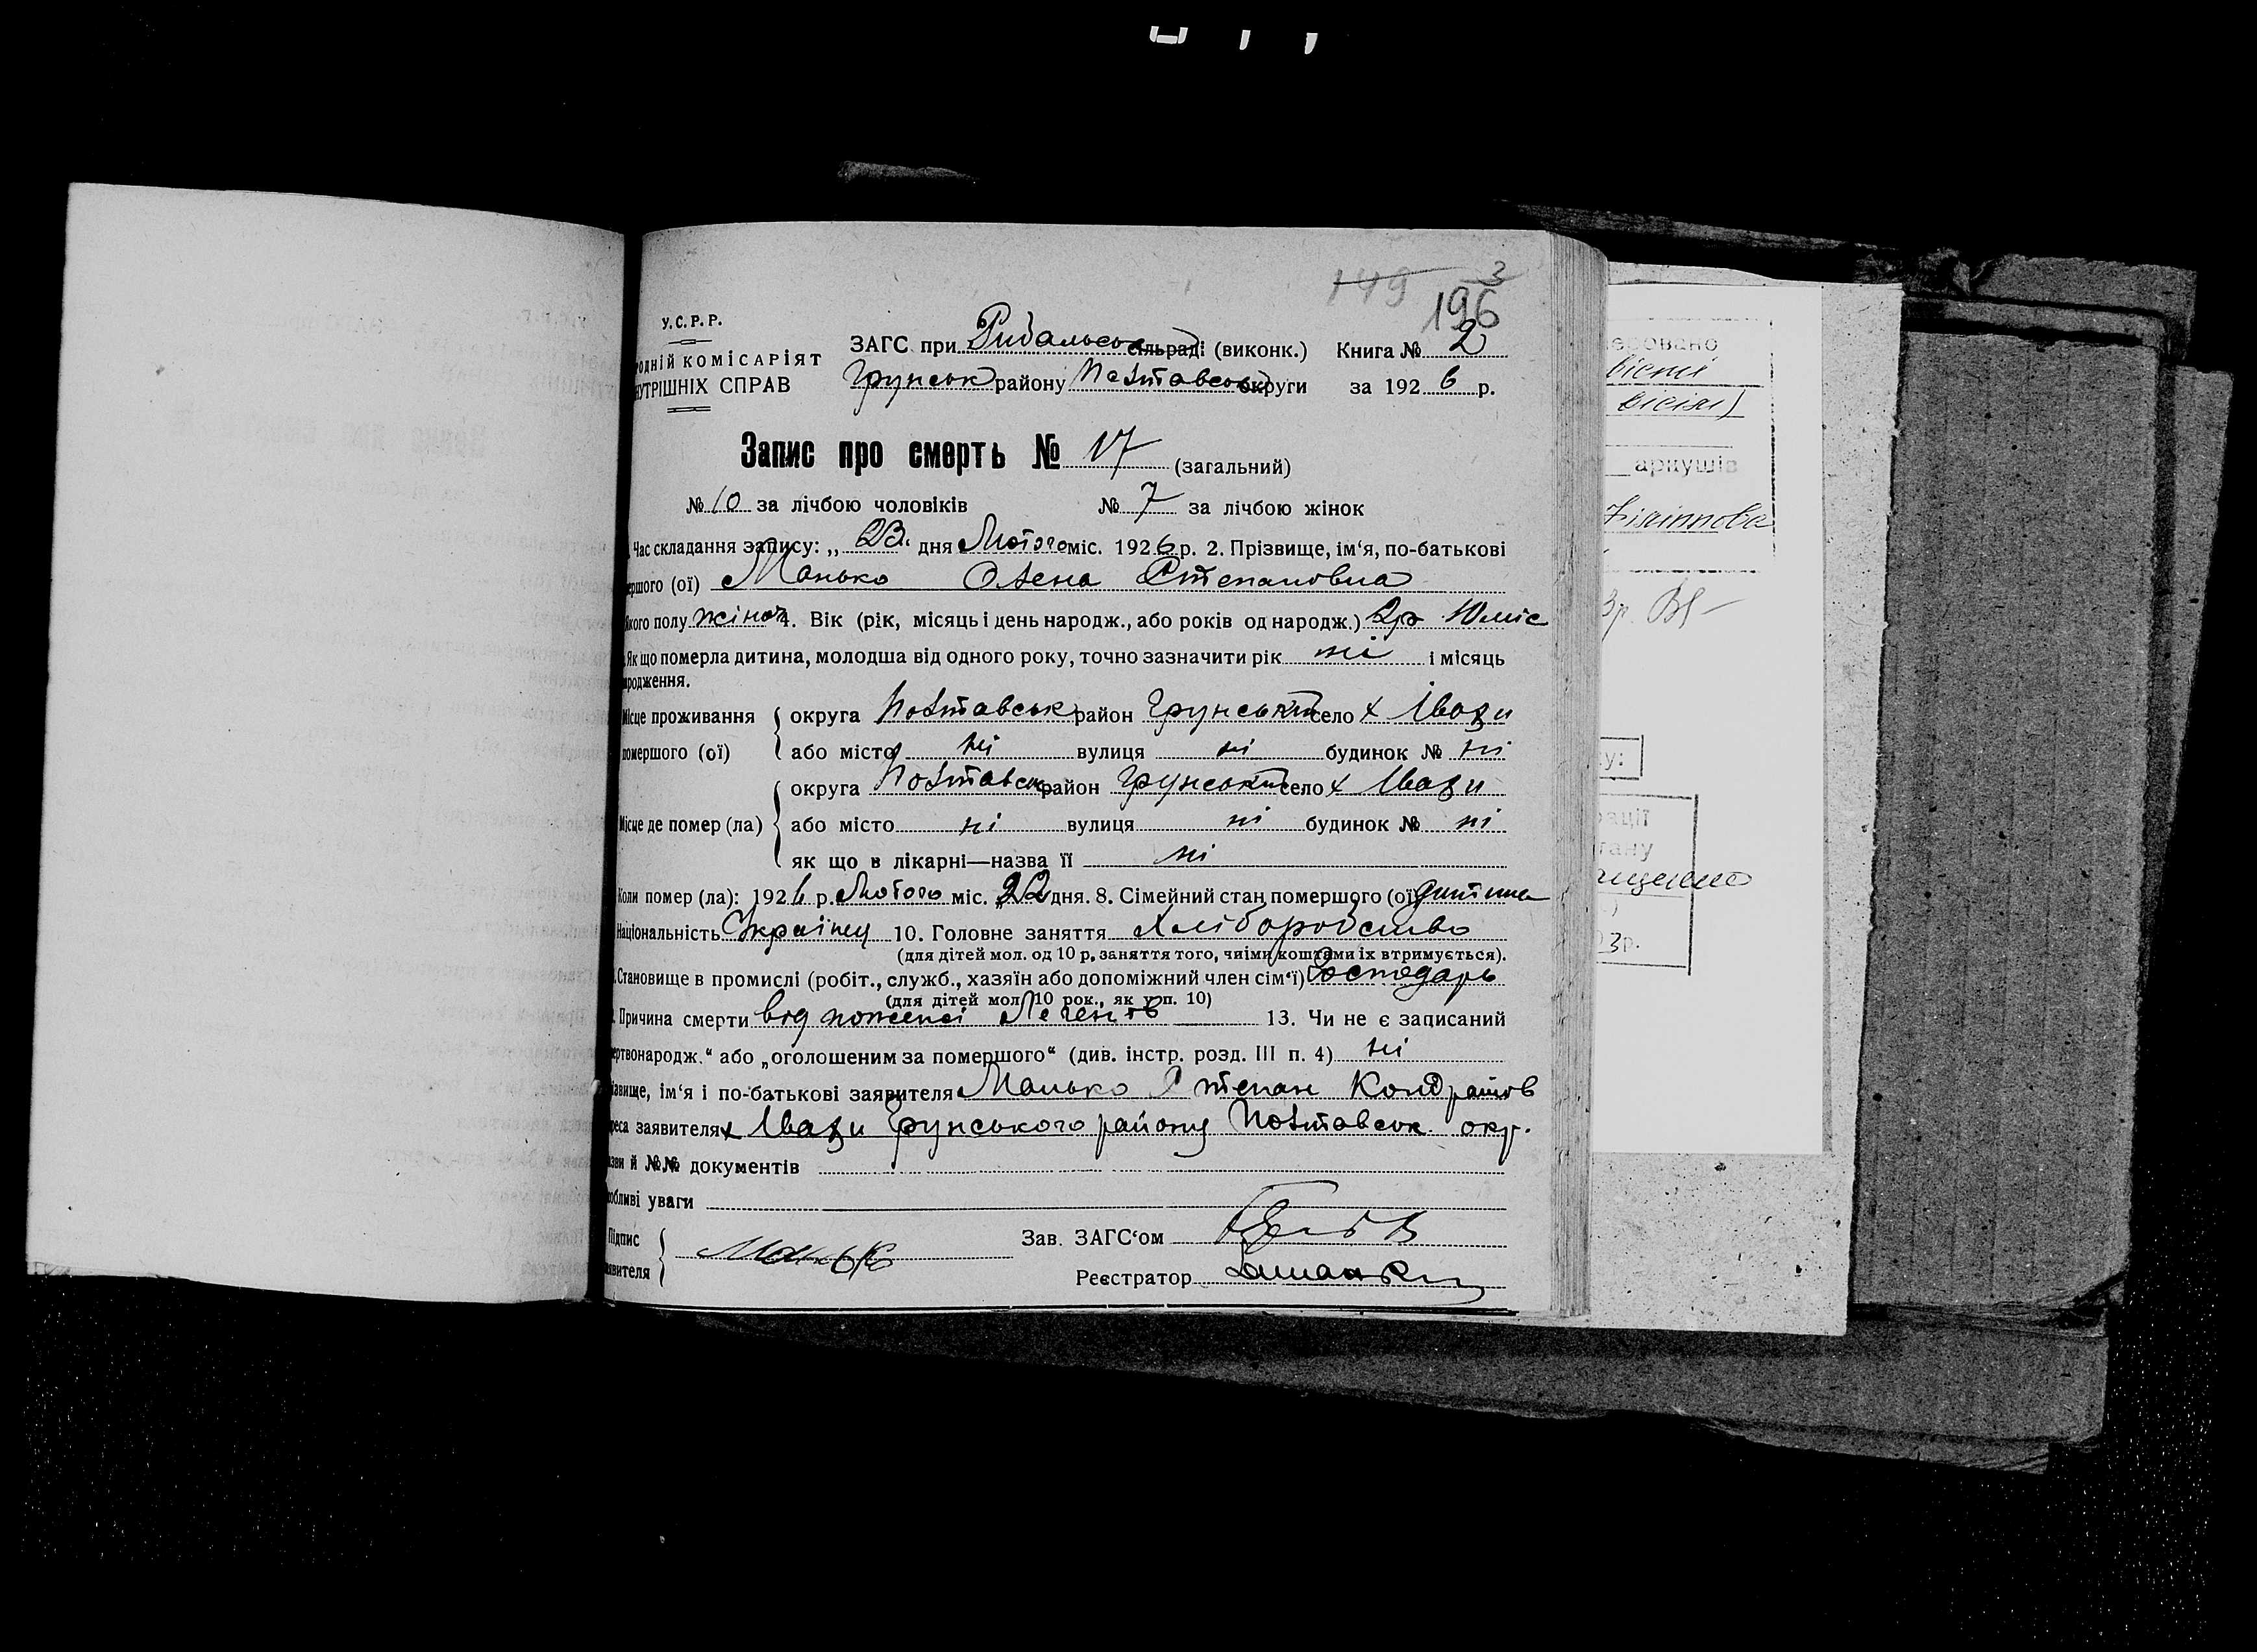 149 3
196
У.С.Р.Р.
ЗАГС при Рибальськ сільраді (виконк.) Книга № 2
родній комісаріят
нутрішніх справ
Грунськ району Полтавськ округи за 1926 р.
Запис про смерть № 17 (загальний)
№ 10 за лічбою чоловіків № 7 за лічбою жінок
Час складання запису: „ 23 " дня Лютого міс. 1926 р. 2. Прізвище, ім'я, по-батькові
ершого (ої) Манько Олена Степановна
якого полу жіноч 4. Вік (рік, місяць і день народж., або років од народж.) 2р 10 міс
Як що померла дитина, молодша від одного року, точно зазначити рік ні і місяць
родження.
Місце проживання округа Полтавськ район Грунський село х Івахи
помершого (ої) або місто ні вулиця ні будинок № ні
округа Полтавськ район Грунський село х Івахи
Місце де помер (ла) або місто ні вулиця ні будинок № ні
як що в лікарні—назва її ні
Коли помер (ла): 1926 р. Лютого міс. 22 дня. 8. Сімейний стан помершого (ої) дитина
Національність Українц 10. Головне заняття Хліборобство
(для дітей мол. од 10 р. заняття того, чиїми коштами їх втримується).
Становище в промислі (робіт., служб., хазяїн або допоміжний член сім'ї) Господарь
(для дітей мол. 10 рок., як у п. 10)
Причина смерти від Легенів 13. Чи не є записаний
ертвонародж." або „оголошеним за помершого" (див. інстр. розд. III п. 4) ні
звище, ім'я і по-батькові заявителя Манько Степан Кондратов
реса заявителя х Івахи Грунського району Полтавськ. окр.
зви й №№ документів
обливі уваги
Підпис Манько Зав. ЗАГС'ом
явителя Реєстратор
аркушів